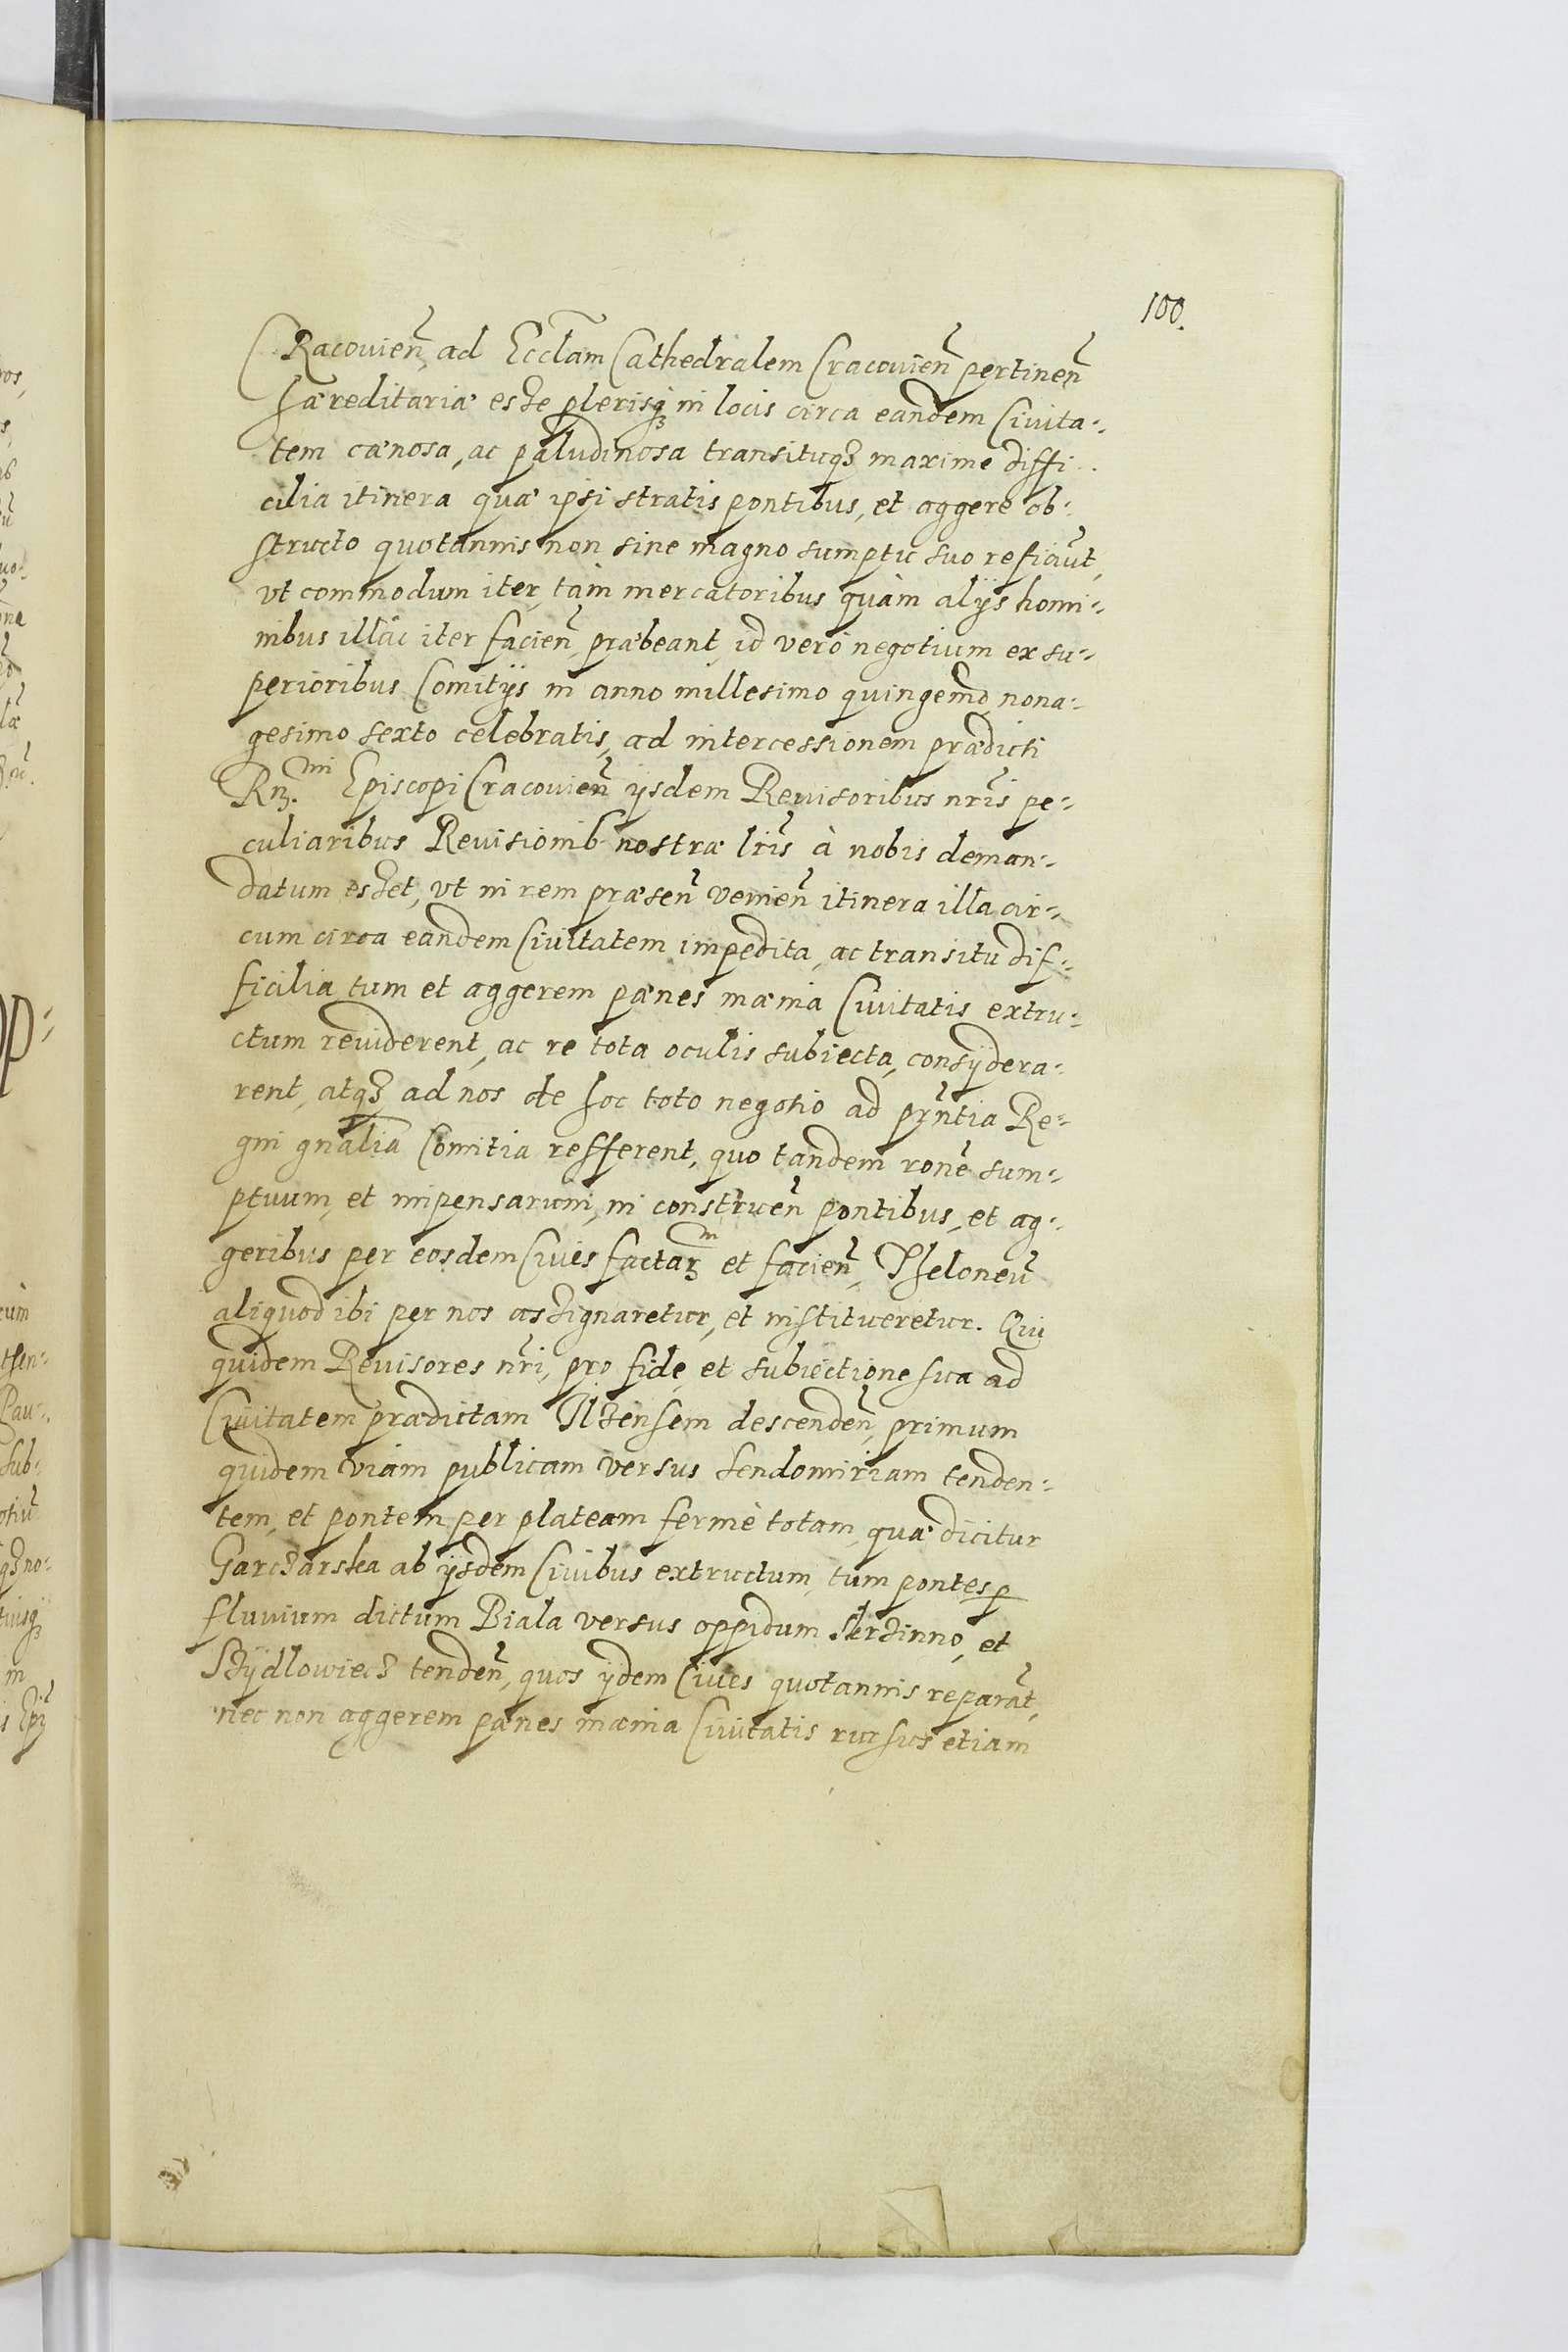 100.
CRacovien̄, ad Eccl̄am Cathedralem Cracovien̄ pertinen̄
hæreditariæ esse plerisq₃ in locis circa eandem Civita-
tem cænosa, ac paludinosa transituq₃ maxime diffi-
cilia itinera quæ ipsi stratis pontibus, et aggere ob-
structo quotannis non sine magno sumptu suo refiāut,
vt commodum iter, tàm mercatoribus quàm alijs homi-
nibus illàc iter facien̄, præbeant, id verò negotium ex su-
perioribus Comitijs in anno millesimo quingemo, nona-
gesimo sexto celebratis, ad intercessionem prædicti
Rn₃.mi Episcopi Cracovien̄ ijsdem Revisoribus nr̄is pe-
culiaribus Revisionib. nostræ lr̄is à nobis deman-
datum esset, vt in rem præsen̄ venien̄ itinera illa cir-
cum circa eandem Civitatem impedita, ac transitu dif-
ficilia tum et aggerem pænes mænia Civitatis extru-
ctum reviderent, ac re tota oculis subiecta, consydera-
rent, atq₃ ad nos de hoc toto negotio ad pr̄ntia Re-
gni gn̄alia Comitia refferent, quo tandem ron̄e sum-
ptuum, et impensarum, in construen̄ pontibus, et ag-
geribus per eosdem Cives factar₃m et facien̄, Theloneū
aliquod ibi per nos assignaretur, et institueretur. Qui
quidem Revisores nr̄i, pro fide, et subiectione sua ad
Civitatem prædictam Ilzensem descenden̄, primum
quidem viam publicam versus Sendomiriam tenden-
tem, et pontem per plateam fermè totam, quæ dicitur
Garczarska ab ijsdem Civibus extructum, tum pontes p̱
fluvium dictum Biala versus oppidum Serzinno, et
Szydlowiecz tenden̄, quos ijdem Cives quotannis reparāt,
nec non aggerem pænes mænia Civitatis rursus etiam